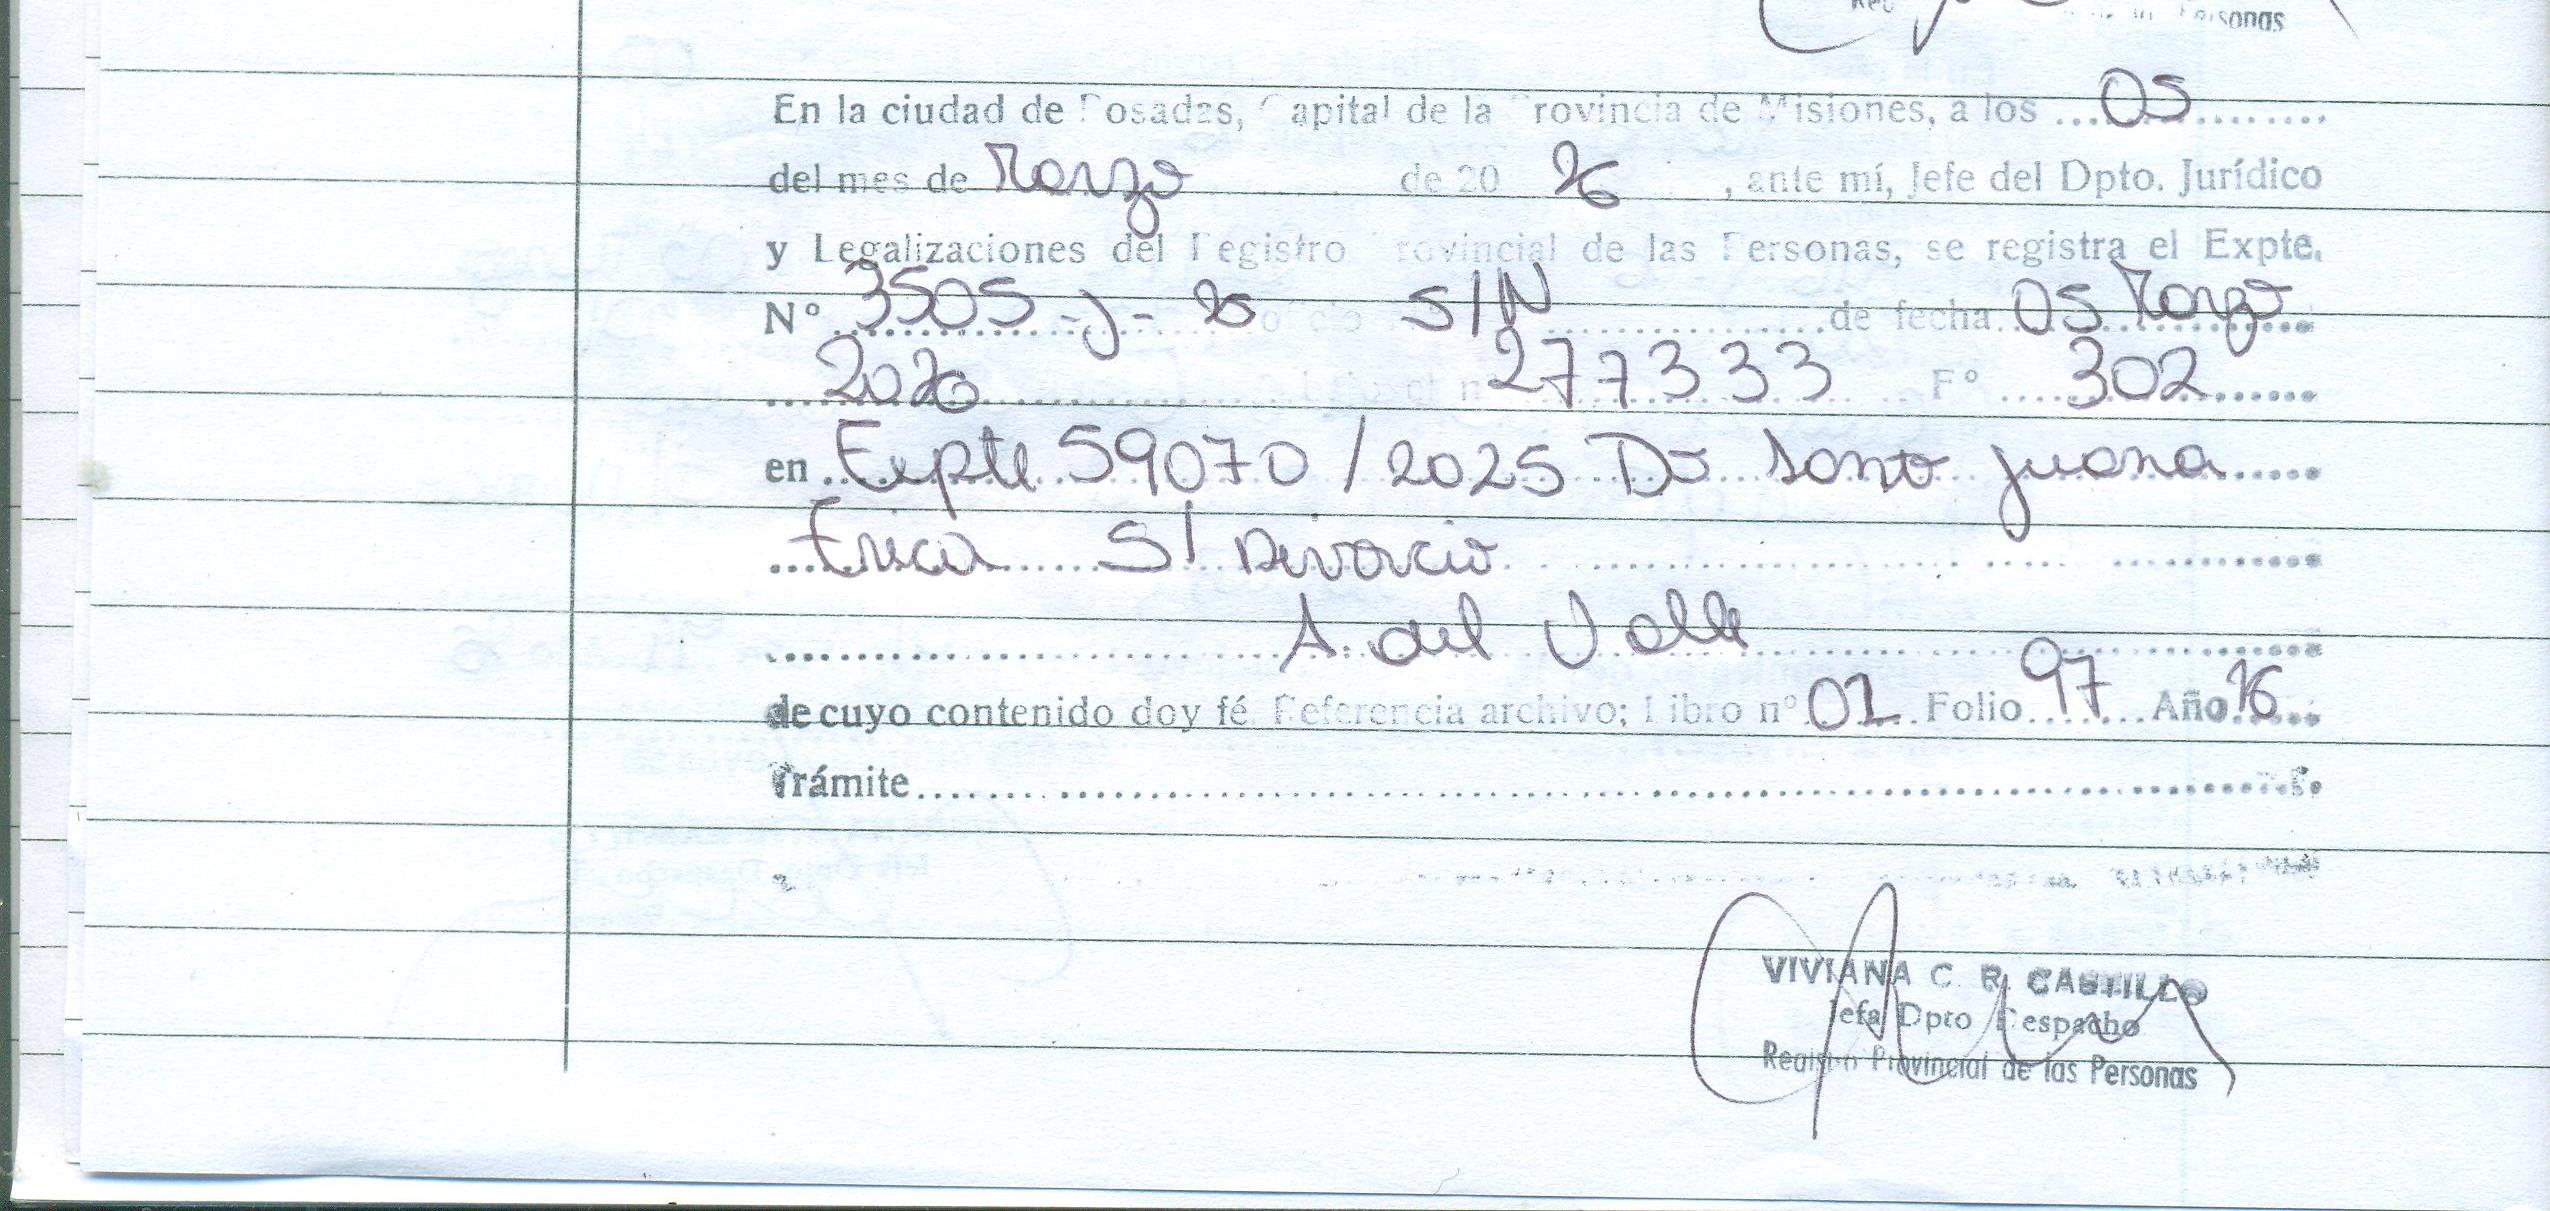 Personas
En la ciudad de Posadas, Capital de la Provincia de Misiones, a los 05
del mes de Marzo de 20 26, ante mí, Jefe del Dpto. Jurídico
y Legalizaciones del Registro Provincial de las Personas, se registra el Expte.
Nº 3505-J-26 oficio S/N de fecha 05 Marzo
2026 277333 Fº 302
en Expte 59070/2025 Do Santo Juana
Erica S/ Divorcio
A. del Valle
de cuyo contenido doy fé. Referencia archivo; Libro nº 01 Folio 97 Año 26
Trámite
VIVIANA C. R. CASTILLO
Jefa Dpto Despacho
Registro Provincial de las Personas